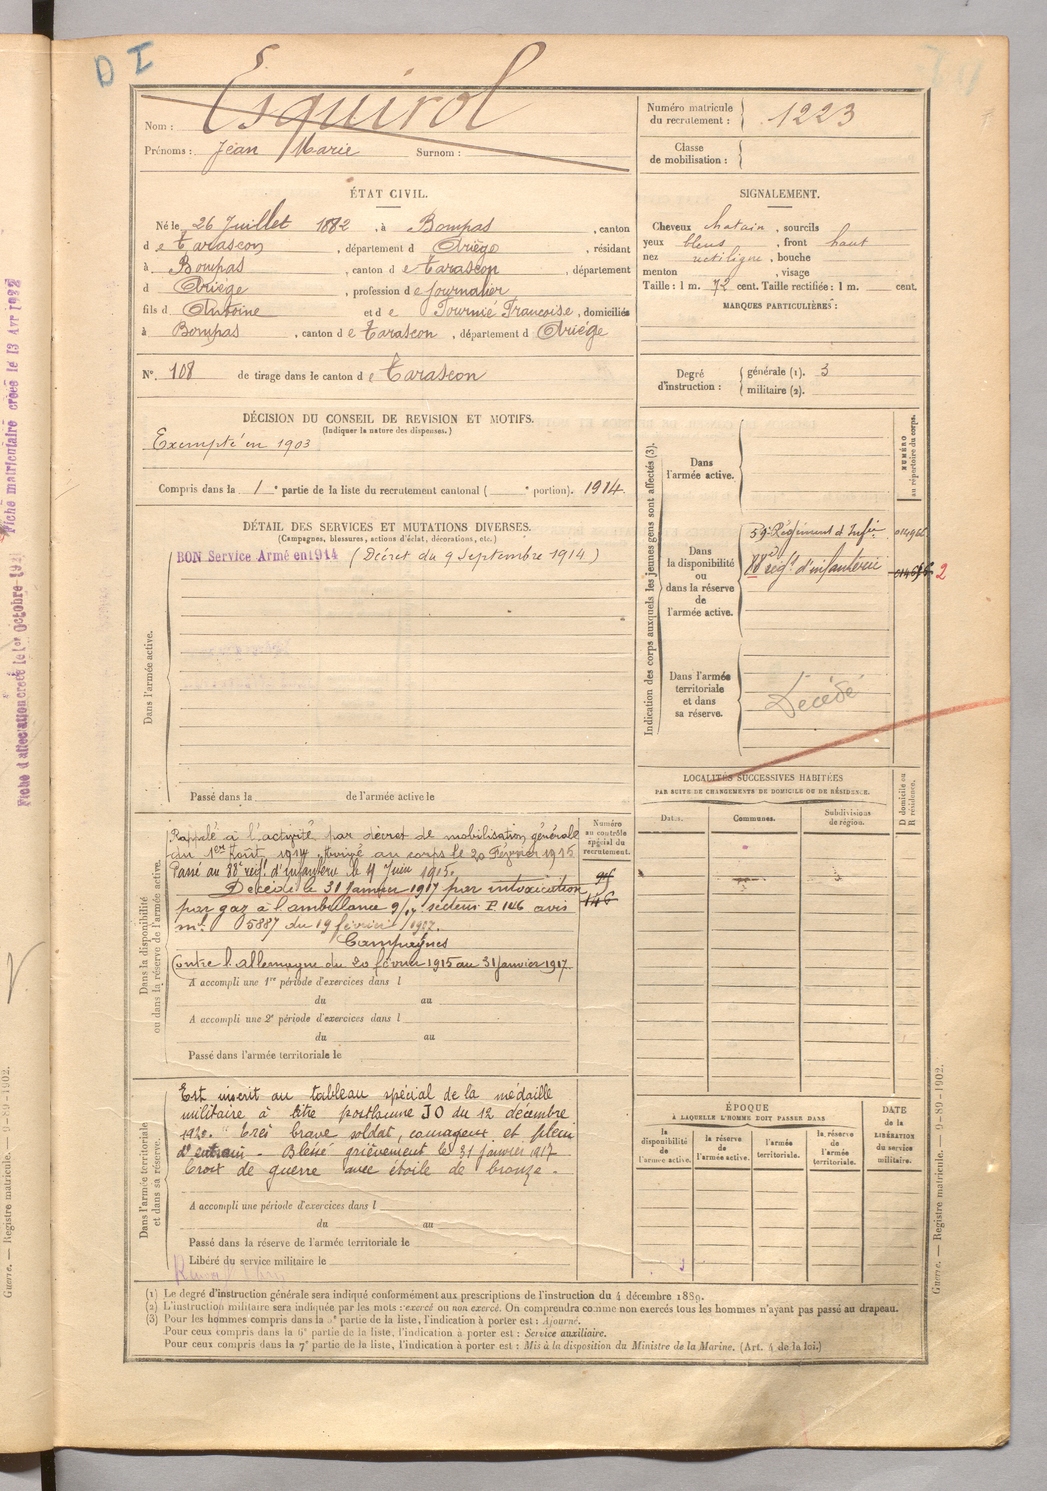 D I
Nom : Esquirol
Prénoms : Jean Marie Surnom :
Numéro matricule du recrutement : 1223
Classe de mobilisation :
ÉTAT CIVIL.
Né le 26 Juillet 1882, à Bompas, canton
de Tarascon, département d Ariège, résidant
à Bompas, canton de Tarascon, département
d Ariége, profession de journalier
fils d Antoine et de Tournié Françoise, domiciliés
à Bompas, canton de Tarascon, département d Ariége
N° 108 de tirage dans le canton de Tarascon
SIGNALEMENT.
Cheveux chatain, sourcils
yeux bleus, front haut
nez rectiligne, bouche
menton, visage
Taille : 1 m. 72 cent. Taille rectifiée : 1 m. cent.
MARQUES PARTICULIÈRES :
Degré d'instruction : générale (1). 3
militaire (2).
DÉCISION DU CONSEIL DE REVISION ET MOTIFS.
(Indiquer la nature des dispenses.)
Exempté en 1903
Compris dans la 1e partie de la liste du recrutement cantonal ( e portion). 1914
DÉTAIL DES SERVICES ET MUTATIONS DIVERSES.
(Campagnes, blessures, actions d'éclat, décorations, etc.)
Dans l'armée active.
BON Service Armé en 1914 (Décret du 9 Septembre 1914)
Passé dans la de l'armée active le
Indication des corps auxquels les jeunes gens sont affectés (3).
NUMÉRO au répertoire du corps.
Dans l'armée active.
Dans la disponibilité ou dans la réserve de l'armée active.
59e Régiment d'Infie
88e régt d'infanterie
2
Dans l'armée territoriale et dans sa réserve.
Décédé
LOCALITÉS SUCCESSIVES HABITÉES
PAR SUITE DE CHANGEMENTS DE DOMICILE OU DE RÉSIDENCE.
Dates. Communes. Subdivisions de région. D domicile ou R résidence.
Dans la disponibilité ou dans la réserve de l'armée active.
Numéro au contrôle spécial du recrutement.
Rappelé à l'activité par décret de mobilisation générale
du 1er Août 1914 Arrivé au corps le 20 Février 1915
Passé au 88e régt d'infanterie le 4 Juin 1915.
Décédé le 31 Janvier 1917 par intoxication
par gaz à l'ambulance 9/17 secteur P. 146 avis
ml 05887 du 19 février 1917.
Campagnes
Contre l'allemagne du 20 février 1915 au 31 janvier 1917
146
A accompli une 1re période d'exercices dans l
du au
A accompli une 2e période d'exercices dans l
du au
Passé dans l'armée territoriale le
Dans l'armée territoriale et dans sa réserve.
Est inscrit au tableau spécial de la médaille
militaire à titre posthume JO du 12 décembre
1920. "Très brave soldat, courageux et plein
d'entrain. Blessé grièvement le 31 janvier 1917
Croix de guerre avec étoile de bronze.
A accompli une période d'exercices dans l
du au
Passé dans la réserve de l'armée territoriale le
Libéré du service militaire le
ÉPOQUE
À LAQUELLE L'HOMME DOIT PASSER DANS
la disponibilité de l'armée active.
la réserve de l'armée active.
l'armée territoriale.
la réserve de l'armée territoriale.
DATE de la LIBÉRATION du service militaire.
(1) Le degré d'instruction générale sera indiqué conformément aux prescriptions de l'instruction du 4 décembre 1889.
(2) L'instruction militaire sera indiquée par les mots : exercé ou non exercé. On comprendra comme non exercés tous les hommes n'ayant pas passé au drapeau.
(3) Pour les hommes compris dans la 5e partie de la liste, l'indication à porter est : Ajourné.
Pour ceux compris dans la 6e partie de la liste, l'indication à porter est : Service auxiliaire.
Pour ceux compris dans la 7e partie de la liste, l'indication à porter est : Mis à la disposition du Ministre de la Marine. (Art. 4 de la loi.)
Guerre. — Registre matricule. — 9-89-1902.
Guerre. — Registre matricule. — 9-89-1902.